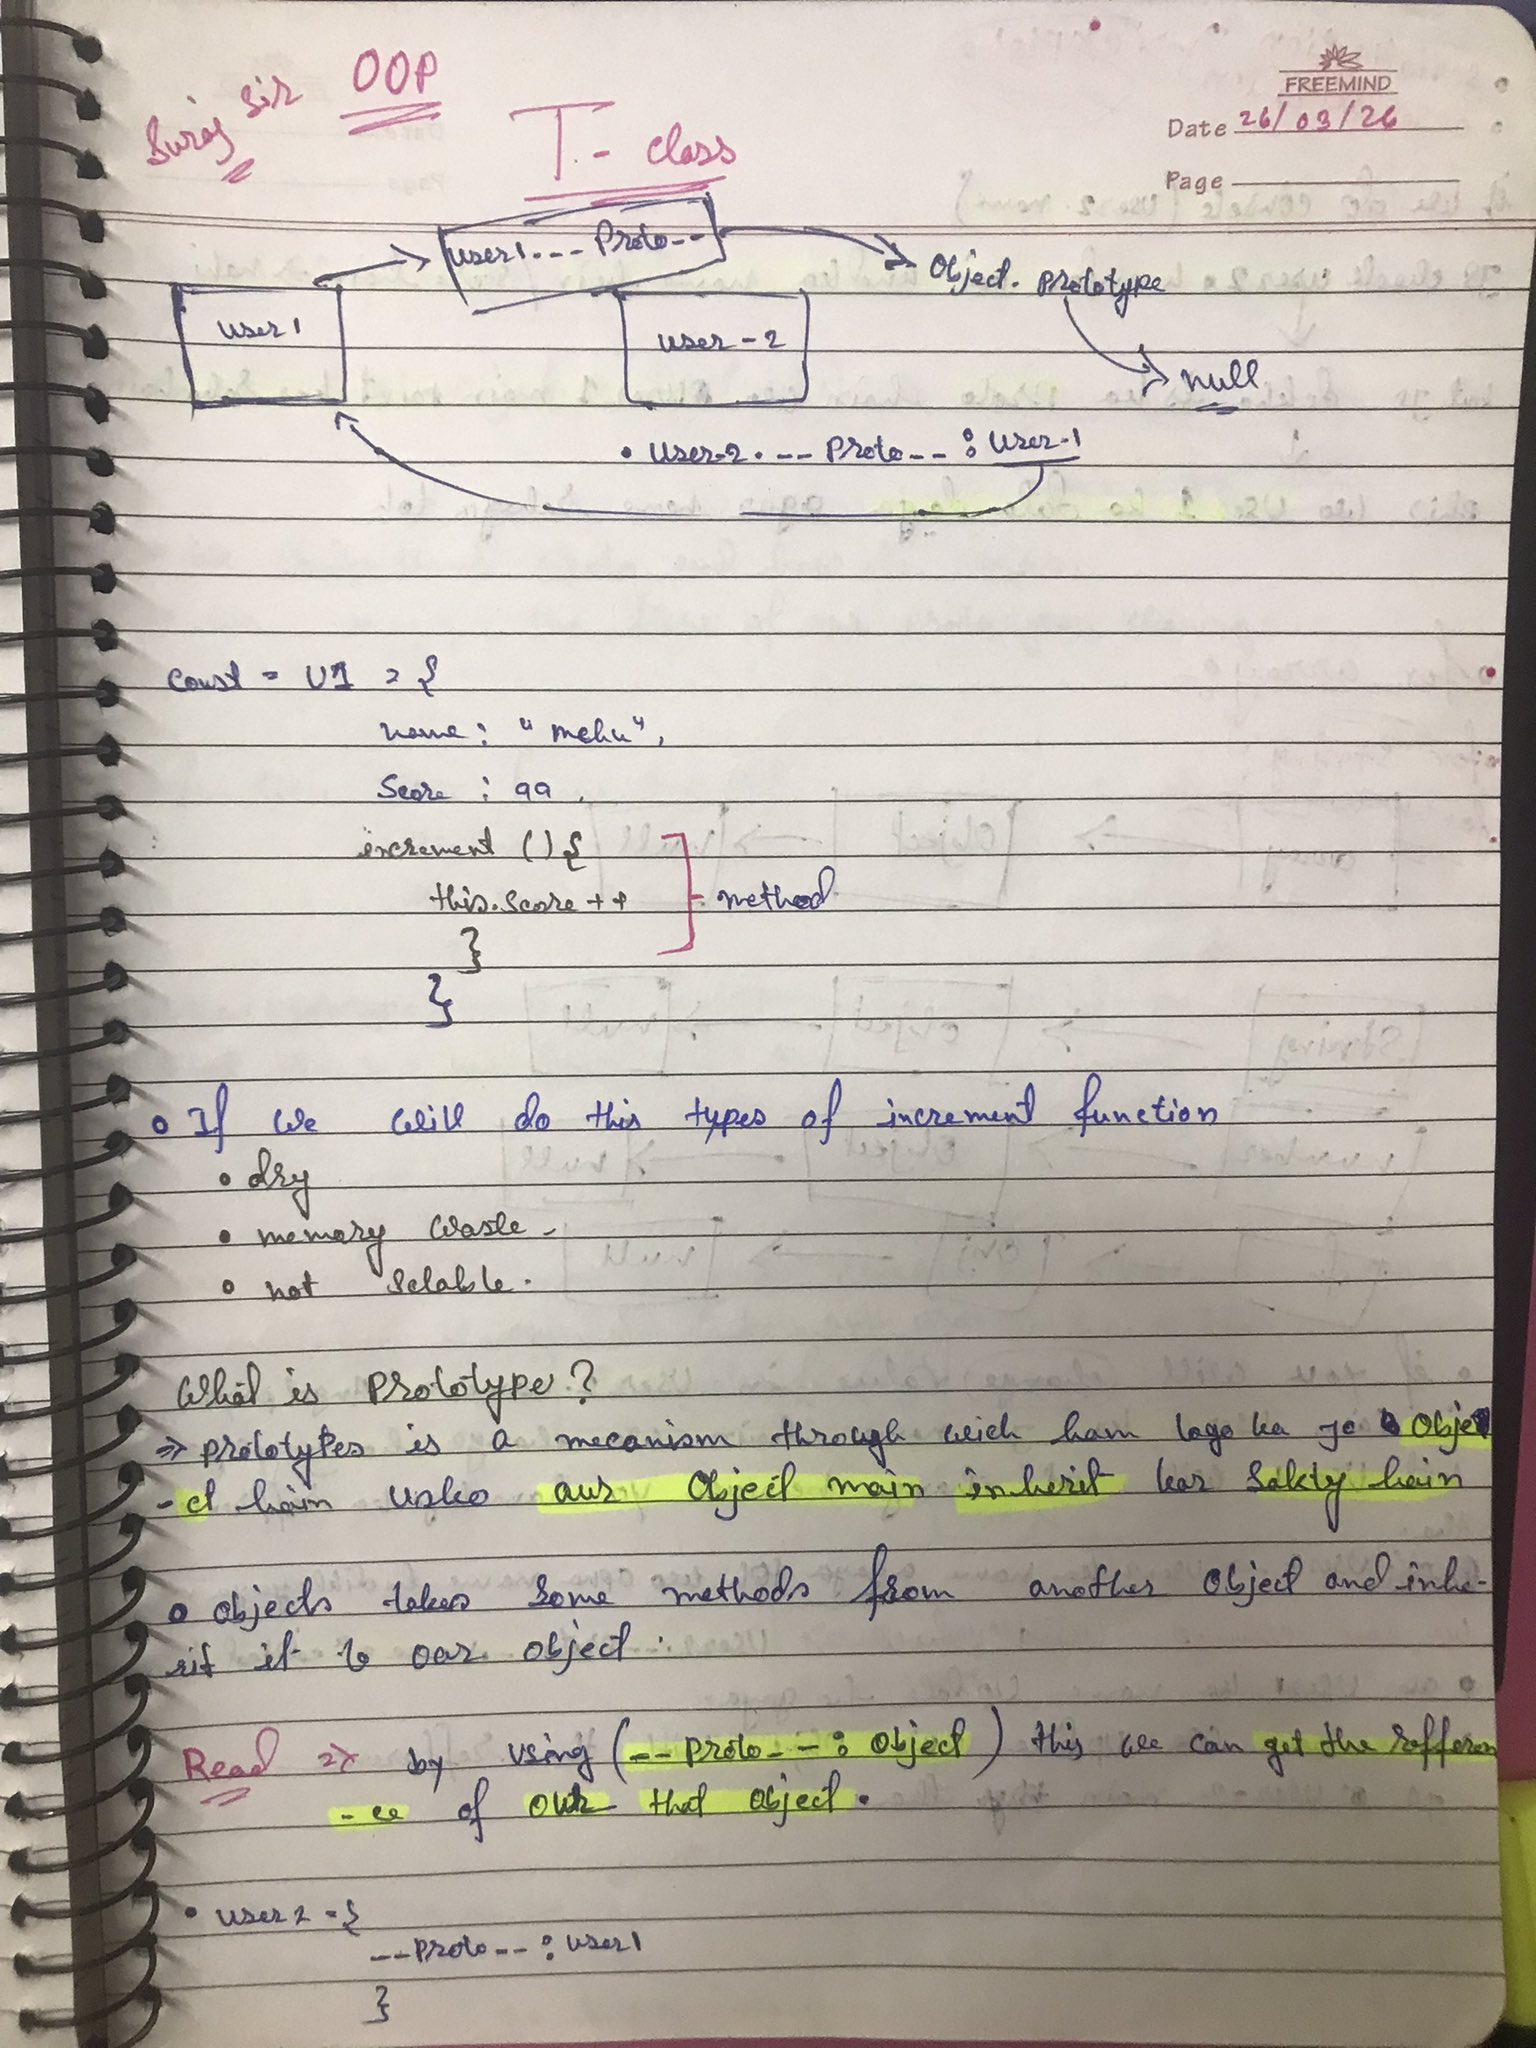 Suraj Sir OOP
T - class
FREEMIND
Date 26/03/26
Page
user1.__Proto__
Object. prototype
user1
user-2
null
• user-2.__Proto__: user-1
Const = U1 = {
name: "mehu",
Score: 99,
increment () {
this.score ++
method
}
}
• If we will do this types of increment function
• dry
• memory waste -
• not Sclable.
What is Prototype?
⇒ prototypes is a mecanism through weich ham logo ka jo Obje
-ct hain usko aur Object main inherit kar Sakty hain
• objects takes some methods from another Object and inhe-
rit it to our object:
Read ⇒ by using (__Proto__: Object) this we can get the refferen
-ce of our that object.
• user2 = {
__Proto__: user1
}